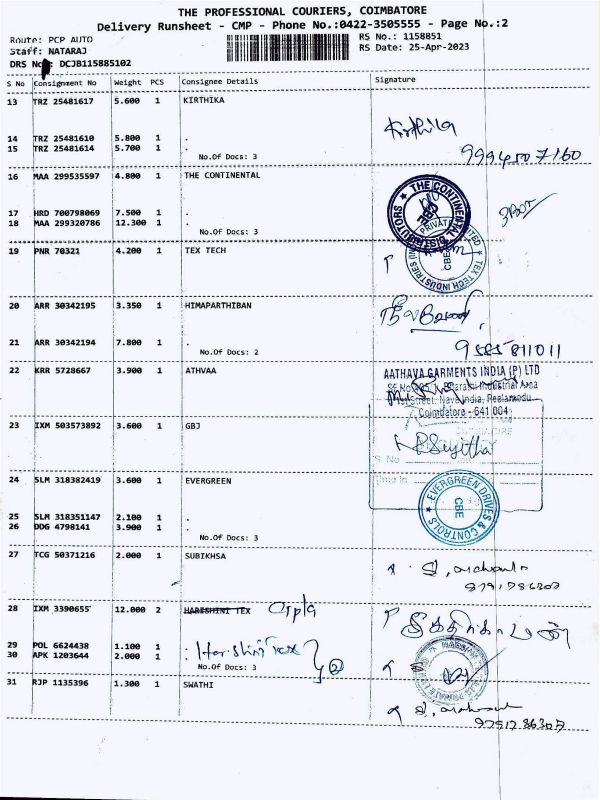 THE PROFESSIONAL COURIERS, COIMBATORE
Delivery Runsheet - CMP - Phone No.:0422-3505555 - Page No.:2
Route: PCP AUTO RS No.: 1158851
Staff: NATARAJ RS Date: 25-Apr-2023
DRS No.: DCJB115885102
S No Consignment No Weight PCS Consignee Details Signature
13 TRZ 25481617 5.600 1 KIRTHIKA
Kirthika
14 TRZ 25481610 5.800 1 .
15 TRZ 25481614 5.700 1 .
No.Of Docs: 3 9994507160
16 MAA 299535597 4.800 1 THE CONTINENTAL
THE CONTINENTAL DISTRIBUTORS
17 HRD 700798069 7.500 1 .
18 MAA 299320786 12.300 1 .
No.Of Docs: 3
19 PNR 70321 4.200 1 TEX TECH
TEX TECH INDUSTRIES CBE
20 ARR 30342195 3.350 1 HIMAPARTHIBAN
21 ARR 30342194 7.800 1 .
No.Of Docs: 2 9585811011
22 KRR 5728667 3.900 1 ATHVAA
AATHAVA GARMENTS INDIA (P) LTD
Bharathi Industrial Area
1st Street, Nava India, Peelamedu
Coimbatore - 641 004
23 IXM 503573892 3.600 1 GBJ
S No
Time In
24 SLM 318382419 3.600 1 EVERGREEN
EVERGREEN DRIVES & CONTROLS CBE
25 SLM 318351147 2.100 1 .
26 DDG 4798141 3.900 1 .
No.Of Docs: 3
27 TCG 50371216 2.000 1 SUBIKHSA
28 IXM 3390655 12.000 2 HARISHINI TEX
29 POL 6624438 1.100 1 . Harshini Tex
30 APK 1203644 2.000 1 .
No.Of Docs: 3
31 RJP 1135396 1.300 1 SWATHI